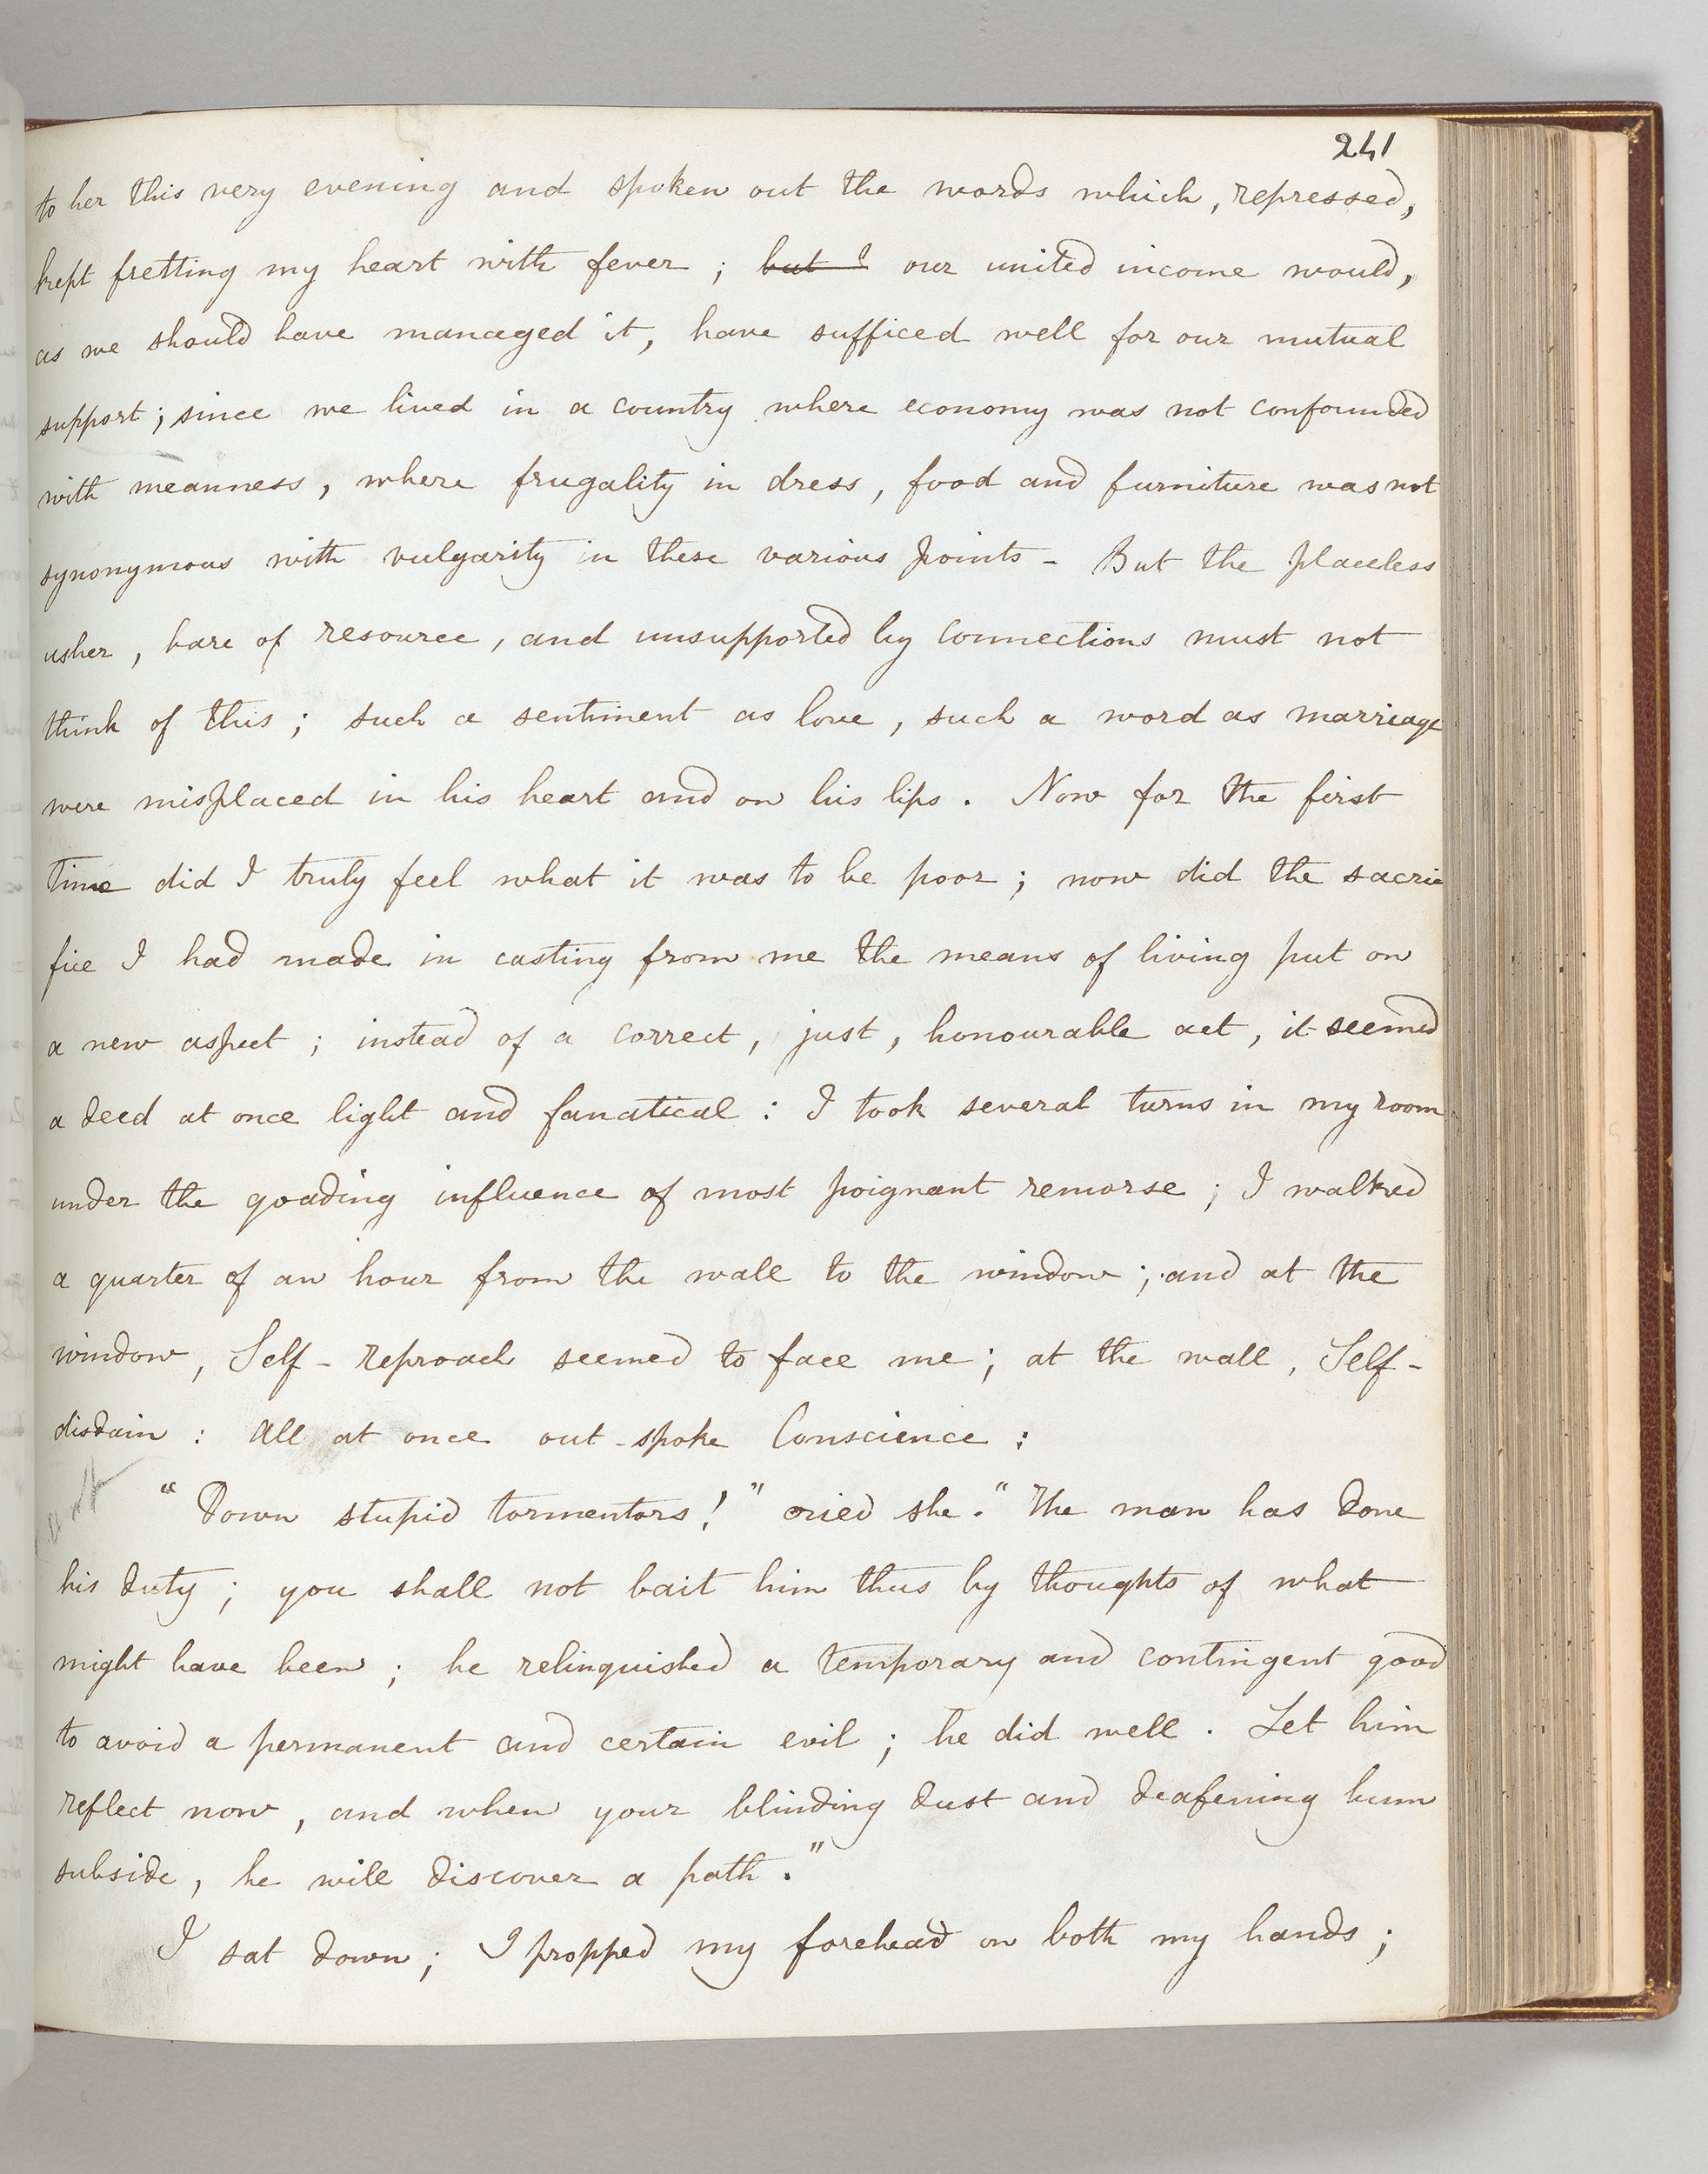 241
to her this very evening and spoken out the words which, repressed,
kept fretting my heart with fever ; but I our united income would,
as we should have managed it, have sufficed well for our mutual
support ; since we lived in a country where economy was not confounded
with meanness, where frugality in dress, food and furniture was not
synonymous with vulgarity in these various points - But the placeless
usher, bare of resource, and unsupported by connections must not
think of this ; such a sentiment as love, such a word as marriage
were misplaced in his heart and on his lips. Now for the first
time did I truly feel what it was to be poor ; now did the sacri
fice I had made in casting from me the means of living put on
a new aspect ; instead of a correct, just, honourable act, it seemed
a deed at once light and fanatical : I took several turns in my room
under the goading influence of most poignant remorse ; I walked
a quarter of an hour from the wall to the window ; and at the
window, Self-reproach seemed to face me ; at the wall, Self-
disdain : All at once out-spoke Conscience :
"Down stupid tormentors!" cried she. "The man has done
his duty ; you shall not bait him thus by thoughts of what
might have been ; he relinquished a temporary and contingent good
to avoid a permanent and certain evil ; he did well. Let him
reflect now, and when your blinding dust and deafening hum
subside, he will discover a path."
I sat down ; I propped my forehead on both my hands ;